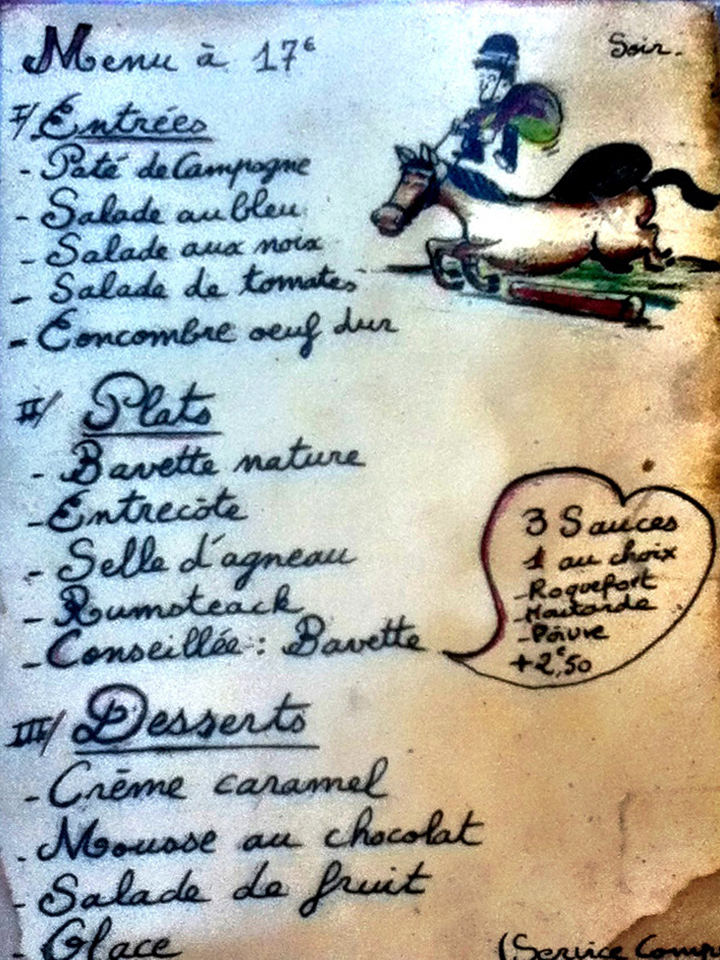 Menu à 17€
Soir.
I/ Entrées
- Paté de Campagne
- Salade au bleu
- Salade aux noix
- Salade de tomates
- Concombre oeuf dur
II/ Plats
- Bavette nature
- Entrecôte
- Selle d'agneau
- Rumsteack
- Conseillée : Bavette
3 Sauces
1 au choix
- Roquefort
- Moutarde
- Poivre
+2€,50
III/ Desserts
- Crème caramel
- Mousse au chocolat
- Salade de fruit
- Glace
(Service Comp